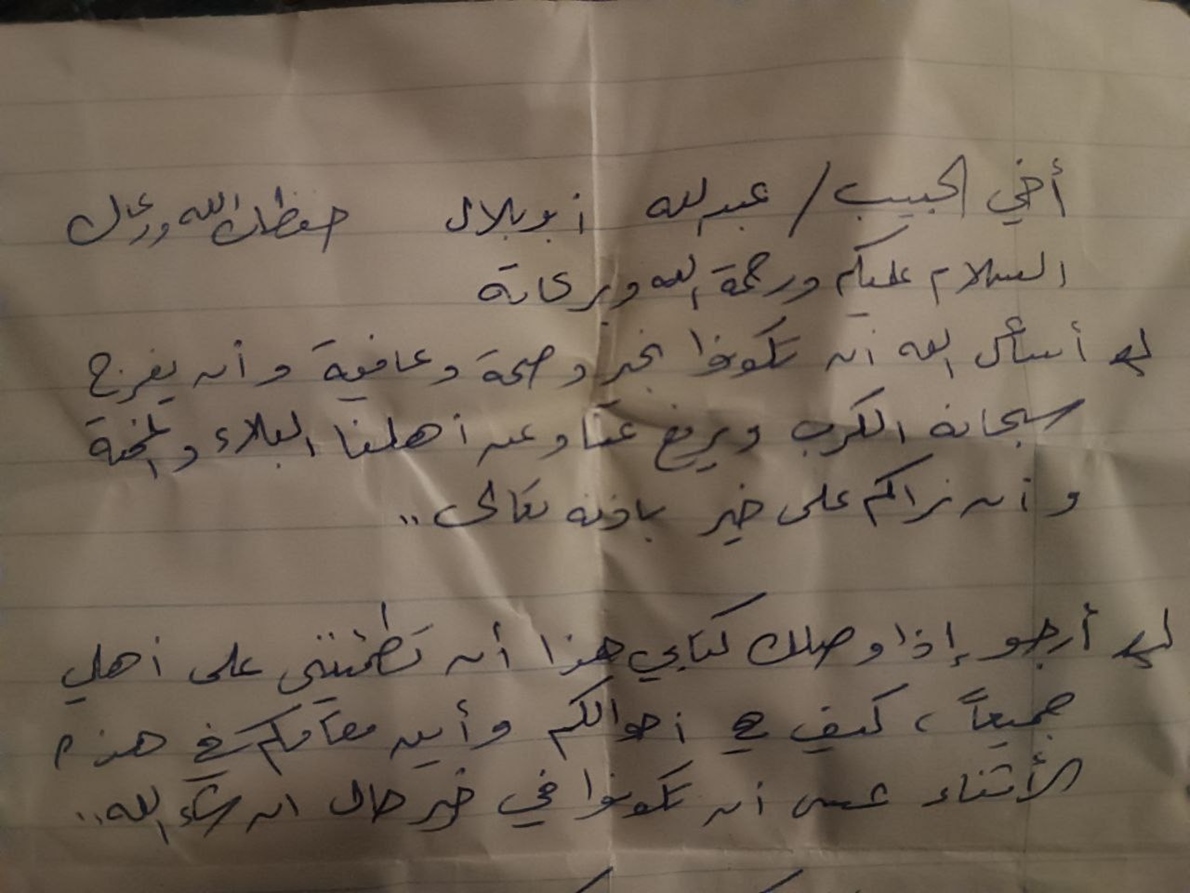 أخي الحبيب / عبد الله أبو بلال حفظك الله ورعاك
السلام عليكم ورحمة الله وبركاته
أسأل الله أن تكونوا بخير وصحة وعافية وأن يفرج
سبحانه الكرب ويرفع عنا وعن أهلنا البلاء والمحنة
وأن نراكم على خير بإذنه تعالى..
أرجو إذا وصلك كتابي هذا أن تطمئنني على أهلي
جميعاً، كيف هي أحوالكم وأين مقامكم في هذه
الأثناء عسى أن تكونوا في خير حال ان شاء الله..